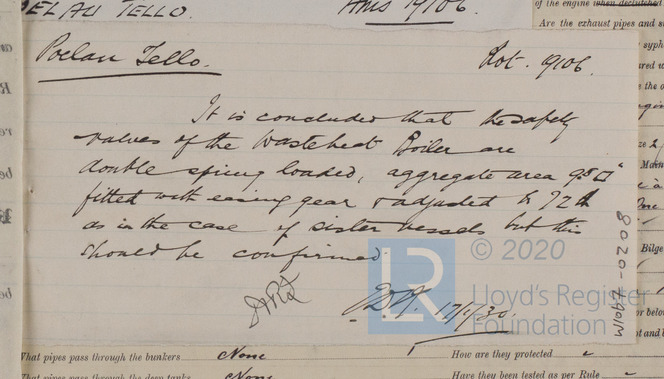 OELAU TELLO.
Ams 19106.
of the engine when declutched
Are the exhaust pipes and
Poelau Tello.
Rot. 19106.
It is concluded that the safety
valves of the Wasteheat Boiler are
double spring loaded, aggregate area 9.8 □"
fitted with easing gear & adjusted to 72 lb
as in the case of sister vessels but this
should be confirmed.
17/1/30.
LR
© 2020
Lloyd's Register
Foundation
What pipes pass through the bunkers None
How are they protected "
What pipes pass through the deep tanks None
Have they been tested as per Rule "